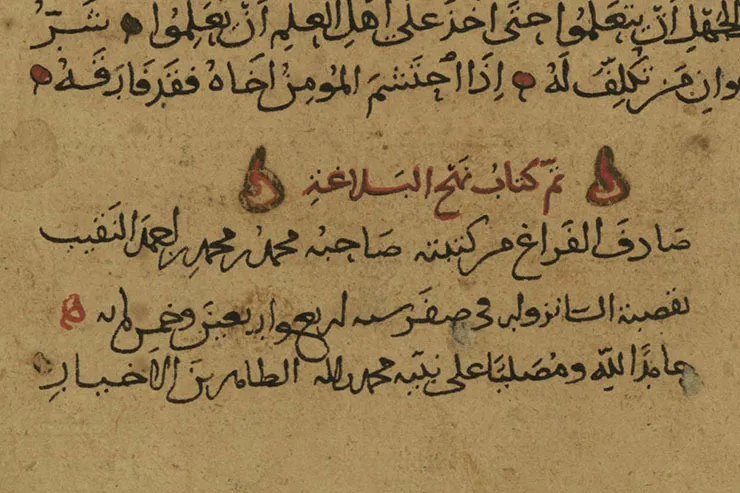 الجهل أن يتعلموا حتى أخذ على أهل العلم أن يعلموا شر
الإخوان من تكلف له إذا احتشم المؤمن أخاه فقد فارقه
تم كتاب نهج البلاغة
صادف الفراغ من كتبته صاحبه محمد بن محمد بن أحمد النقيب
بقصبة السانزوار في صفر سنه اربع واربعين وخمس مائه
حامدا لله ومصليا على نبيه محمد وآله الطاهرين الأخيار